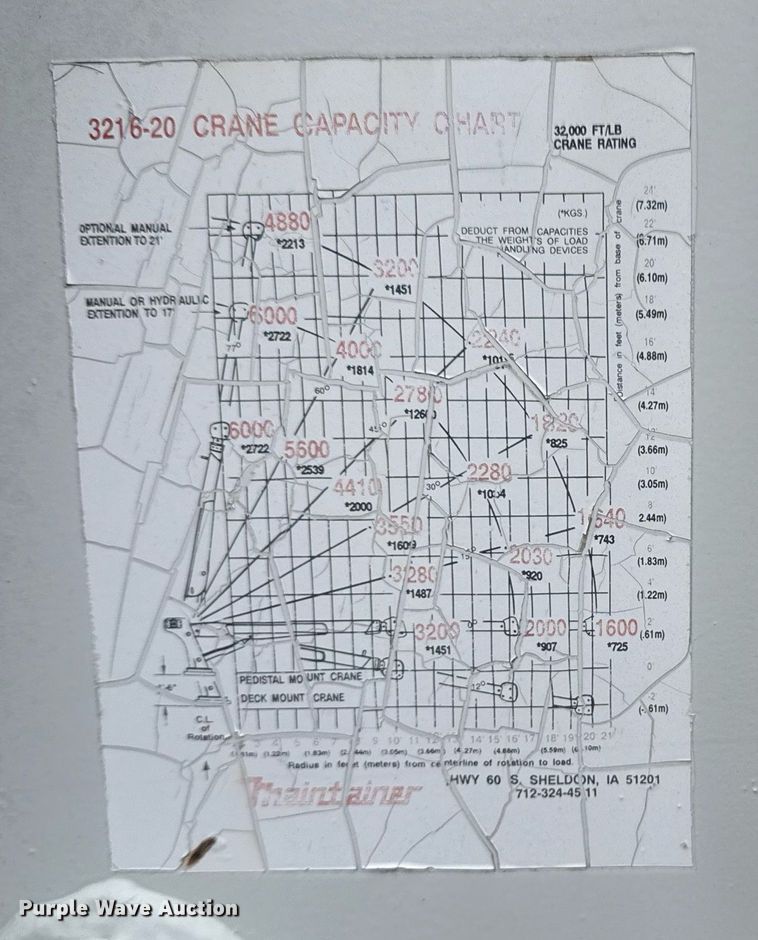 3216-20 CRANE CAPACITY CHART
32,000 FT/LB
CRANE RATING
OPTIONAL MANUAL
EXTENTION TO 21'
MANUAL OR HYDRAULIC
EXTENTION TO 17'
(*KGS.)
DEDUCT FROM CAPACITIES
THE WEIGHTS OF LOAD
HANDLING DEVICES
Distance in feet (meters) from base of crane
24'
(7.32m)
22'
(6.71m)
20'
(6.10m)
18'
(5.49m)
16'
(4.88m)
14'
(4.27m)
12'
(3.66m)
10'
(3.05m)
8'
2.44m)
6'
(1.83m)
4'
(1.22m)
2'
(.61m)
0'
-2'
(-.61m)
4880
*2213
3200
*1451
6000
*2722
4000
*1814
2240
77°
60°
45°
30°
15°
12°
2780
1820
*825
6000
*2722
5600
*2539
2280
4410
*2000
3550
*1609
1640
*743
2030
*920
3280
*1487
3200
*1451
2000
*907
1600
*725
PEDISTAL MOUNT CRANE
DECK MOUNT CRANE
C.L.
of
Rotation
4 5 6 7 8 9 10' 11' 12' 13' 14' 15' 16' 17' 18' 19' 20 21'
(1.22m) (1.83m) (2.44m) (3.05m) (3.66m) (4.27m) (4.88m) (5.59m) (6.10m)
Radius in feet (meters) from centerline of rotation to load.
Maintainer
HWY 60 S. SHELDON, IA 51201
712-324-4511
Purple Wave Auction